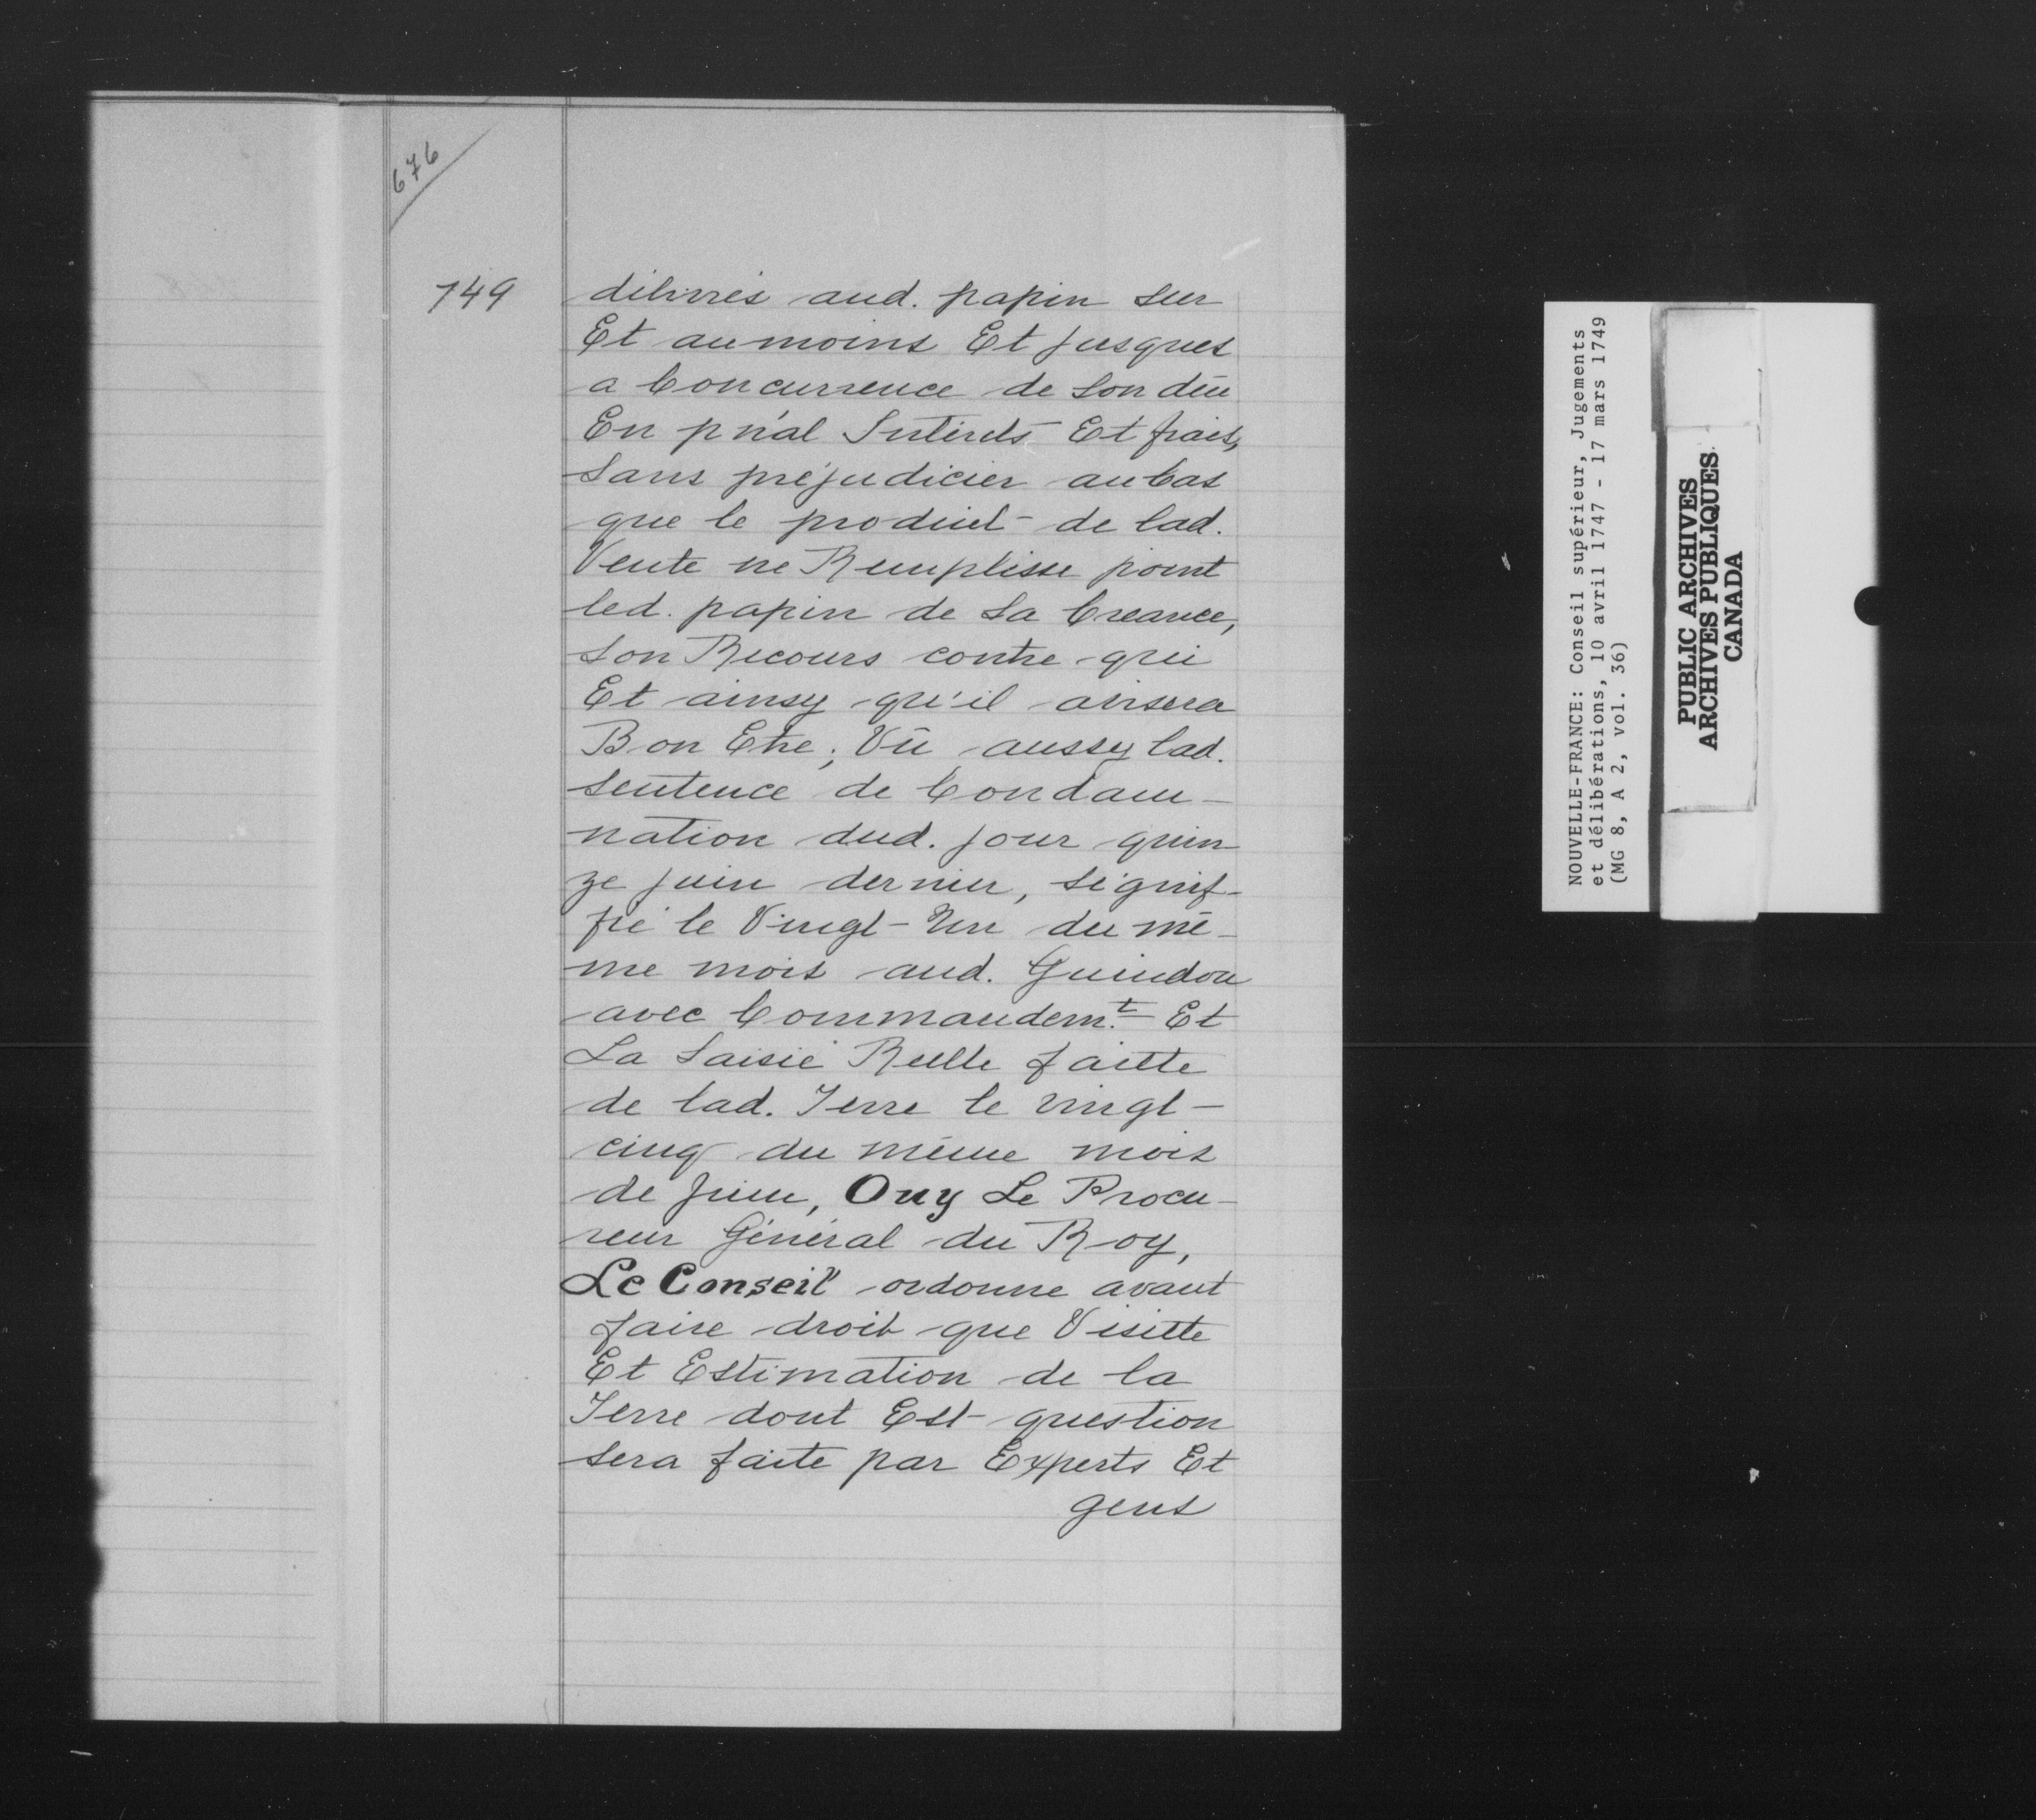 676
749
délivrés aud. papin sur
Et aumoins Et jusques
a Concurrence de son dëu
En p'nal Interêts Et frais,
sans préjudicier au Cas
que le produit de lad.
Vente ne Remplisse point
led. papin de sa Creance,
son Recours contre qui
Et ainsy qu'il avisera
Bon Etre; Vû aussy lad.
sentence de Condam-
nation dud. jour quin
ze juin dernier, signif-
fié le Vingt-Un du mê-
me mois aud. Guindon
avec Commandem.t Et
La Saisie Reelle faitte
de lad. Terre le vingt-
cinq du même mois
de juin, Ouy Le Procu-
reur Général du Roy,
Le Conseil ordonne avant
faire droit que Visitte
Et Estimation de la
Terre dont Est question
sera faite par Experts Et
gens
NOUVELLE-FRANCE: Conseil supérieur, Jugements
et délibérations, 10 avril 1747 - 17 mars 1749
(MG 8, A 2, vol. 36)
PUBLIC ARCHIVES
ARCHIVES PUBLIQUES
CANADA